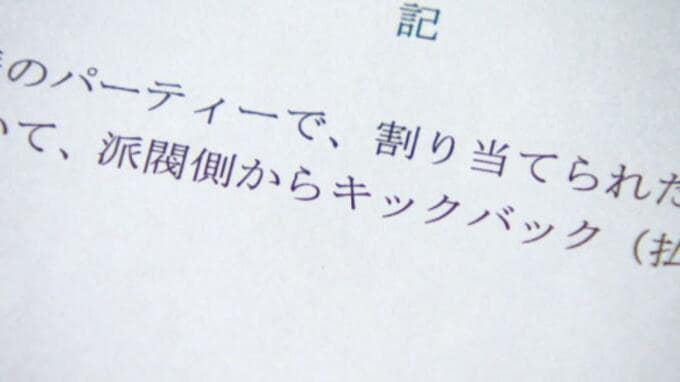 記
のパーティーで、割り当てられた
いて、派閥側からキックバック（払